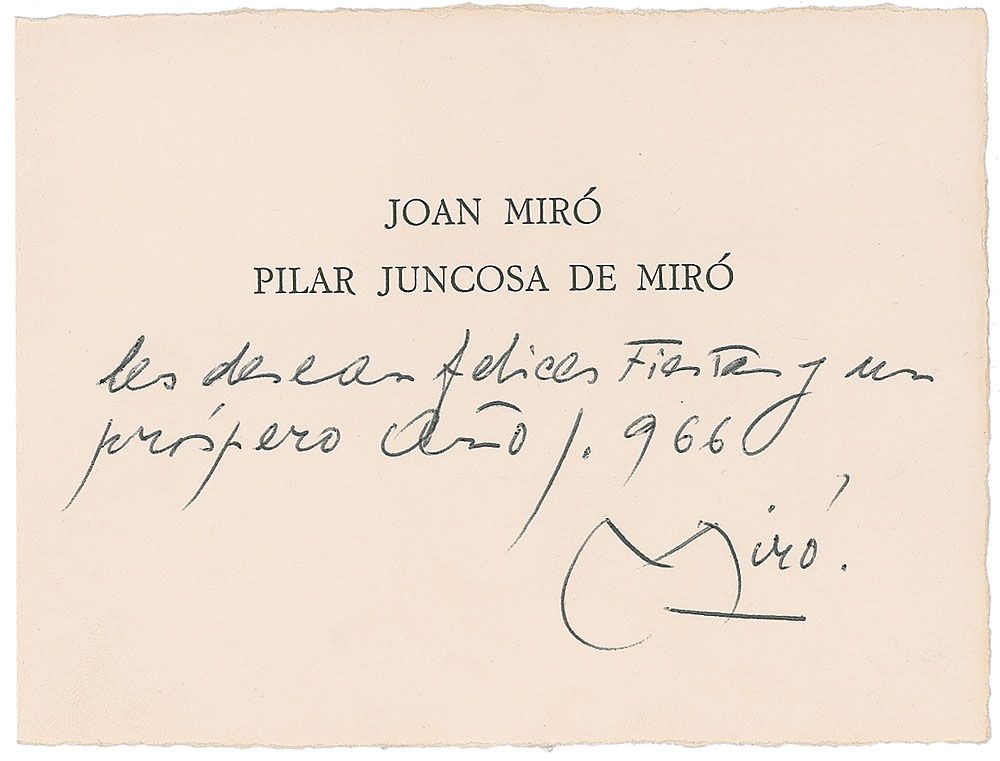 JOAN MIRÓ
PILAR JUNCOSA DE MIRÓ
les desean felices Fiestas y un
próspero Año 1.966
Miró.